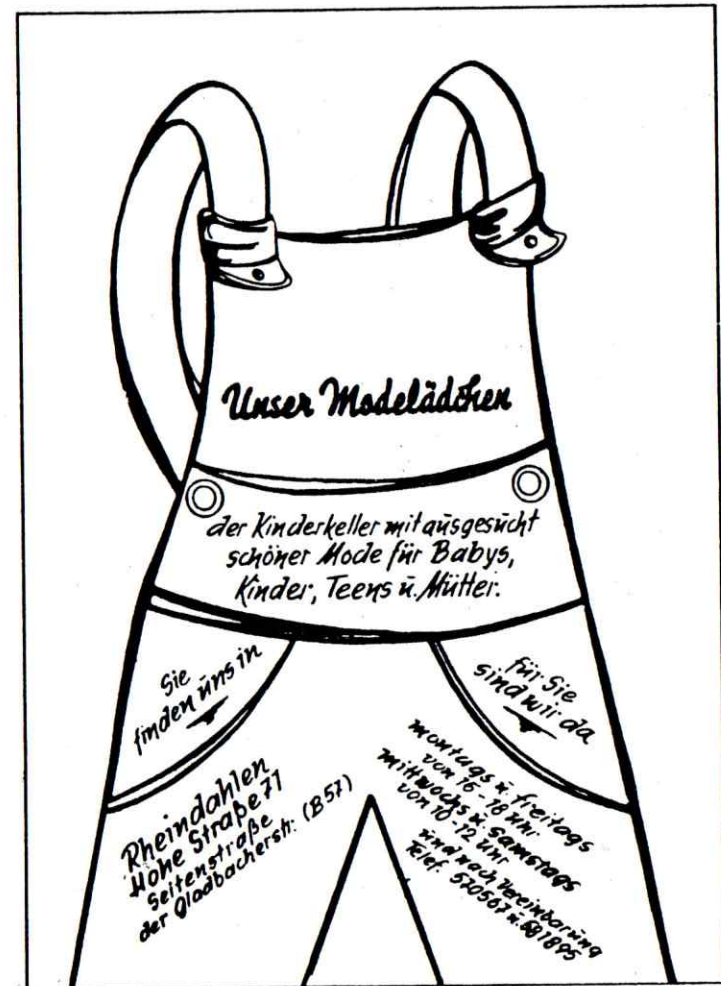 Unser Modelädchen
der Kinderkeller mit ausgesucht
schöner Mode für Babys,
Kinder, Teens u. Mütter.
Sie
finden uns in
für Sie
sind wir da
Rheindahlen
Hohe Straße 71
Seitenstraße
der Gladbacherstr. (B57)
montags u. freitags
von 16-18 Uhr
mittwochs u. samstags
von 10-12 Uhr
und nach Vereinbarung
Telef. 570567 u. 581895